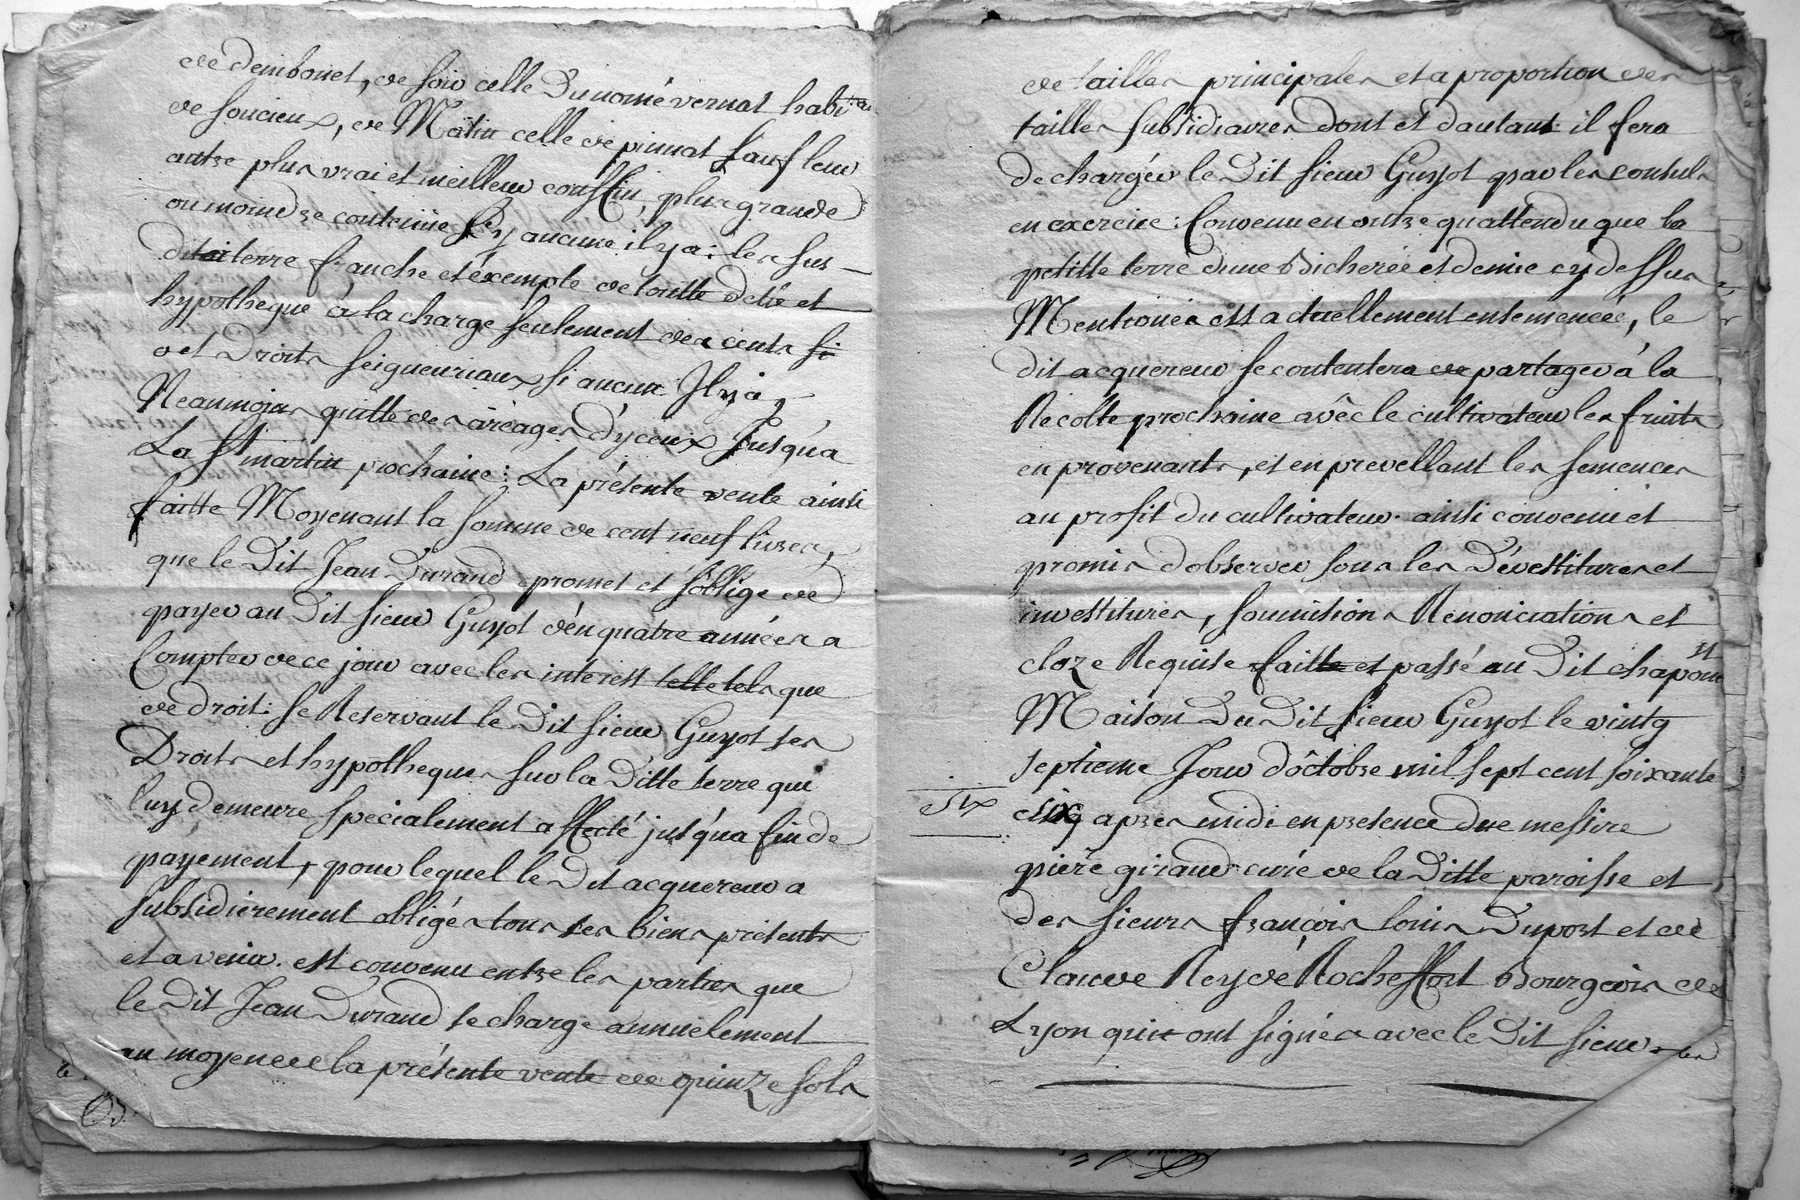 de dembouet, de soir celle du nomé vernat habit.
de soucieux, de Matin celle de pinnat sauf leur
autre plus vrai et meilleur conffin, plus grande
ou moindre contenüe sy aucune il y a: les sus-
dite terre franche et éxempte de toutte dette et
hypotheque à la charge seulement des cents
et Droits seigneuriaux si aucun Il y a
Neanmoins quitte des aréages d'yceux Jusqu'a
La St martin prochaine: La présente vente ainsi
faitte Moyenant la somme de cent neuf livres,
que le Dit Jean Durand promet et sôblige de
payer au Dit sieur Guyot d'en quatre années a
Compter de ce jour avec les interest telle tels que
de droit: se Reservant le Dit sieur Guyot ses
Droits et hypotheques sur la Ditte terre qui
luy demeure specialement affecté jusqu'a fin de
payement, pour lequel le Dit acquereur a
subsidierement obligés tous ses biens présents
et a venir. est convenu entre les parties que
le Dit Jean Durand se charge annuelement
au moyen de la présente vente de quinze sols
de tailles principales et a proportion des
tailles subsidiaires dont et dautant il sera
dechargée le Dit sieur Guyot par les consuls
en exercice: Convenu en outre qu'attendu que la
petitte terre dune Bicherée et demie cy dessus
Mentionées est actuellement ensemencée, le
dit acquereur se contentera de partager à la
Récolte prochaine avêc le cultivateur les fruits
en provenants, et en prevellant les semences
au profit du cultivateur. ainsi convenu et
promis d'observer sous les Dévestitures et
investitures, soumitions Renonciations et
cloze Requise faitte et passé au Dit chapono st
Maison Du Dit sieur Guyot le vintg
septieme Jour d'octobre mil sept cent soixante
six
six apres midi en presence de messire
pierre giraud curé de la Ditte paroisse et
des sieurs françois louis Duport et de
Claude Rey de Rocheffort Bourgeois de
Lyon qui ont signés avec le Dit sieur